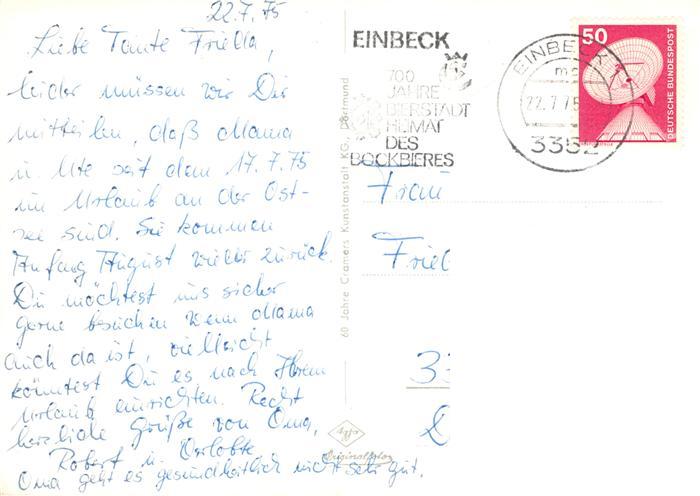 22.7.75
Liebe Tante Frieda,
leider müssen wir Dir
mitteilen, daß Mama
u. Ute seit dem 17.7.75
im Urlaub an der Ost-
see sind. Sie kommen
Anfang August wieder zurück.
Du möchtest uns sicher
gerne besuchen wenn Mama
auch da ist, vielleicht
könntest Du es nach Ihrem
Urlaub einrichten. Recht
herzliche Grüße von Oma,
Robert u.
Oma geht es gesundheitlich nicht sehr gut.
60 Jahre Cramers Kunstanstalt KG, Dortmund
Agfa
Originalfoto
EINBECK
700
JAHRE
BIERSTADT
HEIMAT
DES
BOCKBIERES
EINBECK 1
22.7.75
3352
50
DEUTSCHE BUNDESPOST
Frau
Fried
33
D